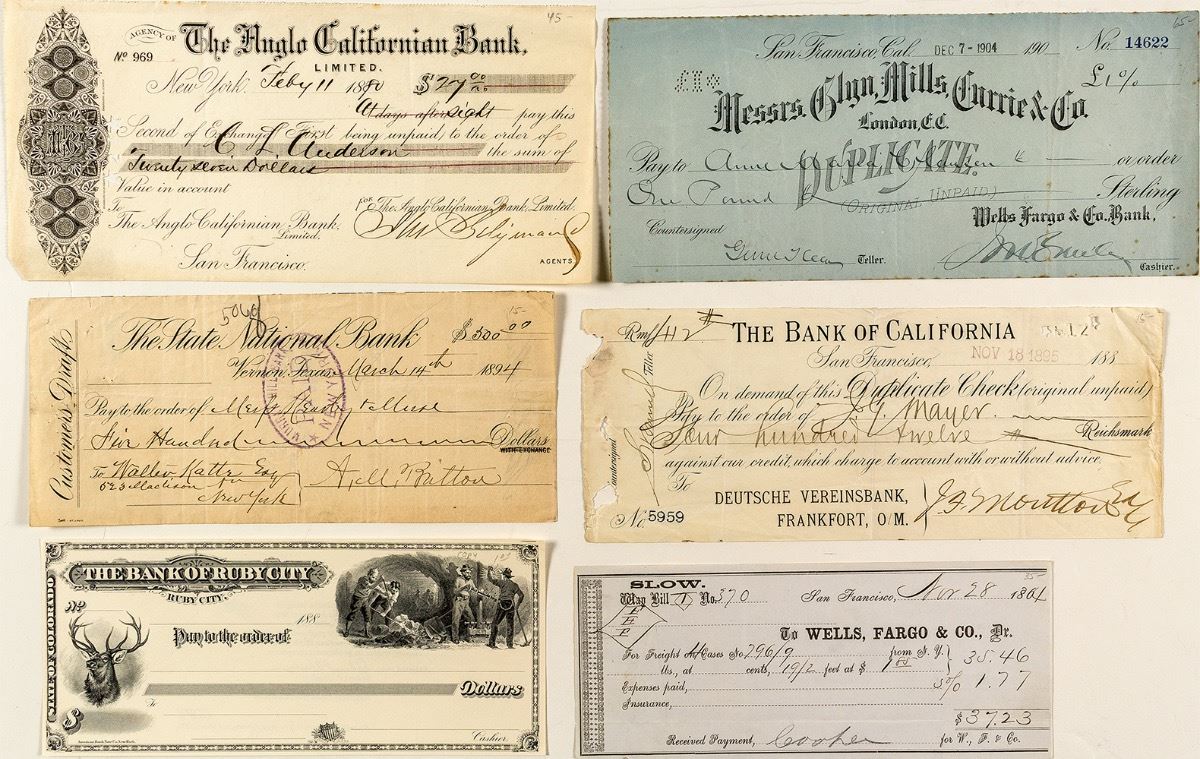 45-
AGENCY OF The Anglo Californian Bank,
LIMITED.
No. 969
New York Feby 11 1880 $27 00
At days after sight pay this
Second of Exchange First being unpaid, to the order of
C L Anderson the sum of
Twenty seven Dollars
Value in account
To FOR The Anglo Californian Bank, Limited.
The Anglo Californian Bank,
Limited.
San Francisco. AGENTS
San Francisco, Cal. DEC 7 - 1904 190 No. 14622
Messrs. Glyn, Mills, Currie & Co.
London, E.C.
Pay to Anne or order
DUPLICATE.
(ORIGINAL UNPAID)
One Pound Sterling
Wells Fargo & Co. Bank,
Countersigned
Teller. Cashier.
Customers Draft
5060
15-
The State National Bank $500 00
Vernon, Texas, March 14th 1894
PAID
Pay to the order of
Five Hundred Dollars
WITH EXCHANGE
To Walter Esq
523 Madison
New York
15-
Rm/412 THE BANK OF CALIFORNIA
San Francisco, NOV 18 1895 188
On demand of this Duplicate Check (original unpaid)
Pay to the order of Mayer
Four hundred twelve Reichsmark
against our credit, which charge to account with or without advice.
To
DEUTSCHE VEREINSBANK,
FRANKFORT, O/M.
No. 5959
countersigned
Teller
THE BANK OF RUBY CITY
RUBY CITY,
STATE OF COLORADO
No. 188
Pay to the order of
Dollars
To
$
Cashier.
35-
SLOW.
Way Bill 1, No. 370 San Francisco, Nov. 28 1864
To WELLS, FARGO & CO., Dr.
For Freight of Cases No. 296/9 from N.Y.
lbs., at cents, 19/2 feet at $ 1.00 35.46
Expenses paid, 5% 1.77
Insurance,
$37.23
Received Payment, Cooper for W., F. & Co.